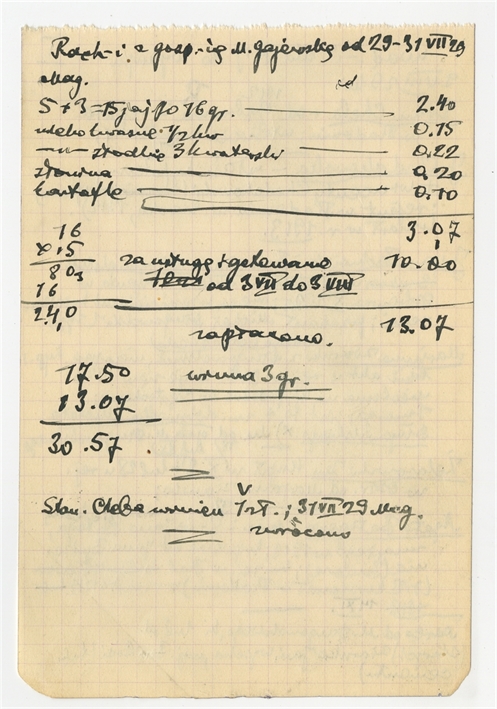 Rach-i z gosp-ią M. Gajewską od 29-31 VII 29
Mag.
5 × 3 = 15 jaj po 16 gr. — 2.40
mleko kwaśne 1/2 kw 0.15
—"— słodkie 3 kwaterki — 0.22
słonina — 0.20
kartofle — 0.10
3.07
16
× 15
80
16
240
za usługę i gotowanie 10.00
od 3 VII do 3 VIII
13.07
zapłacono.
17.50
13.07
30.57
winna 3 gr.
Stan. Chleba winien 1 zł. ; 31 VII 29 Mag.
zwrócono